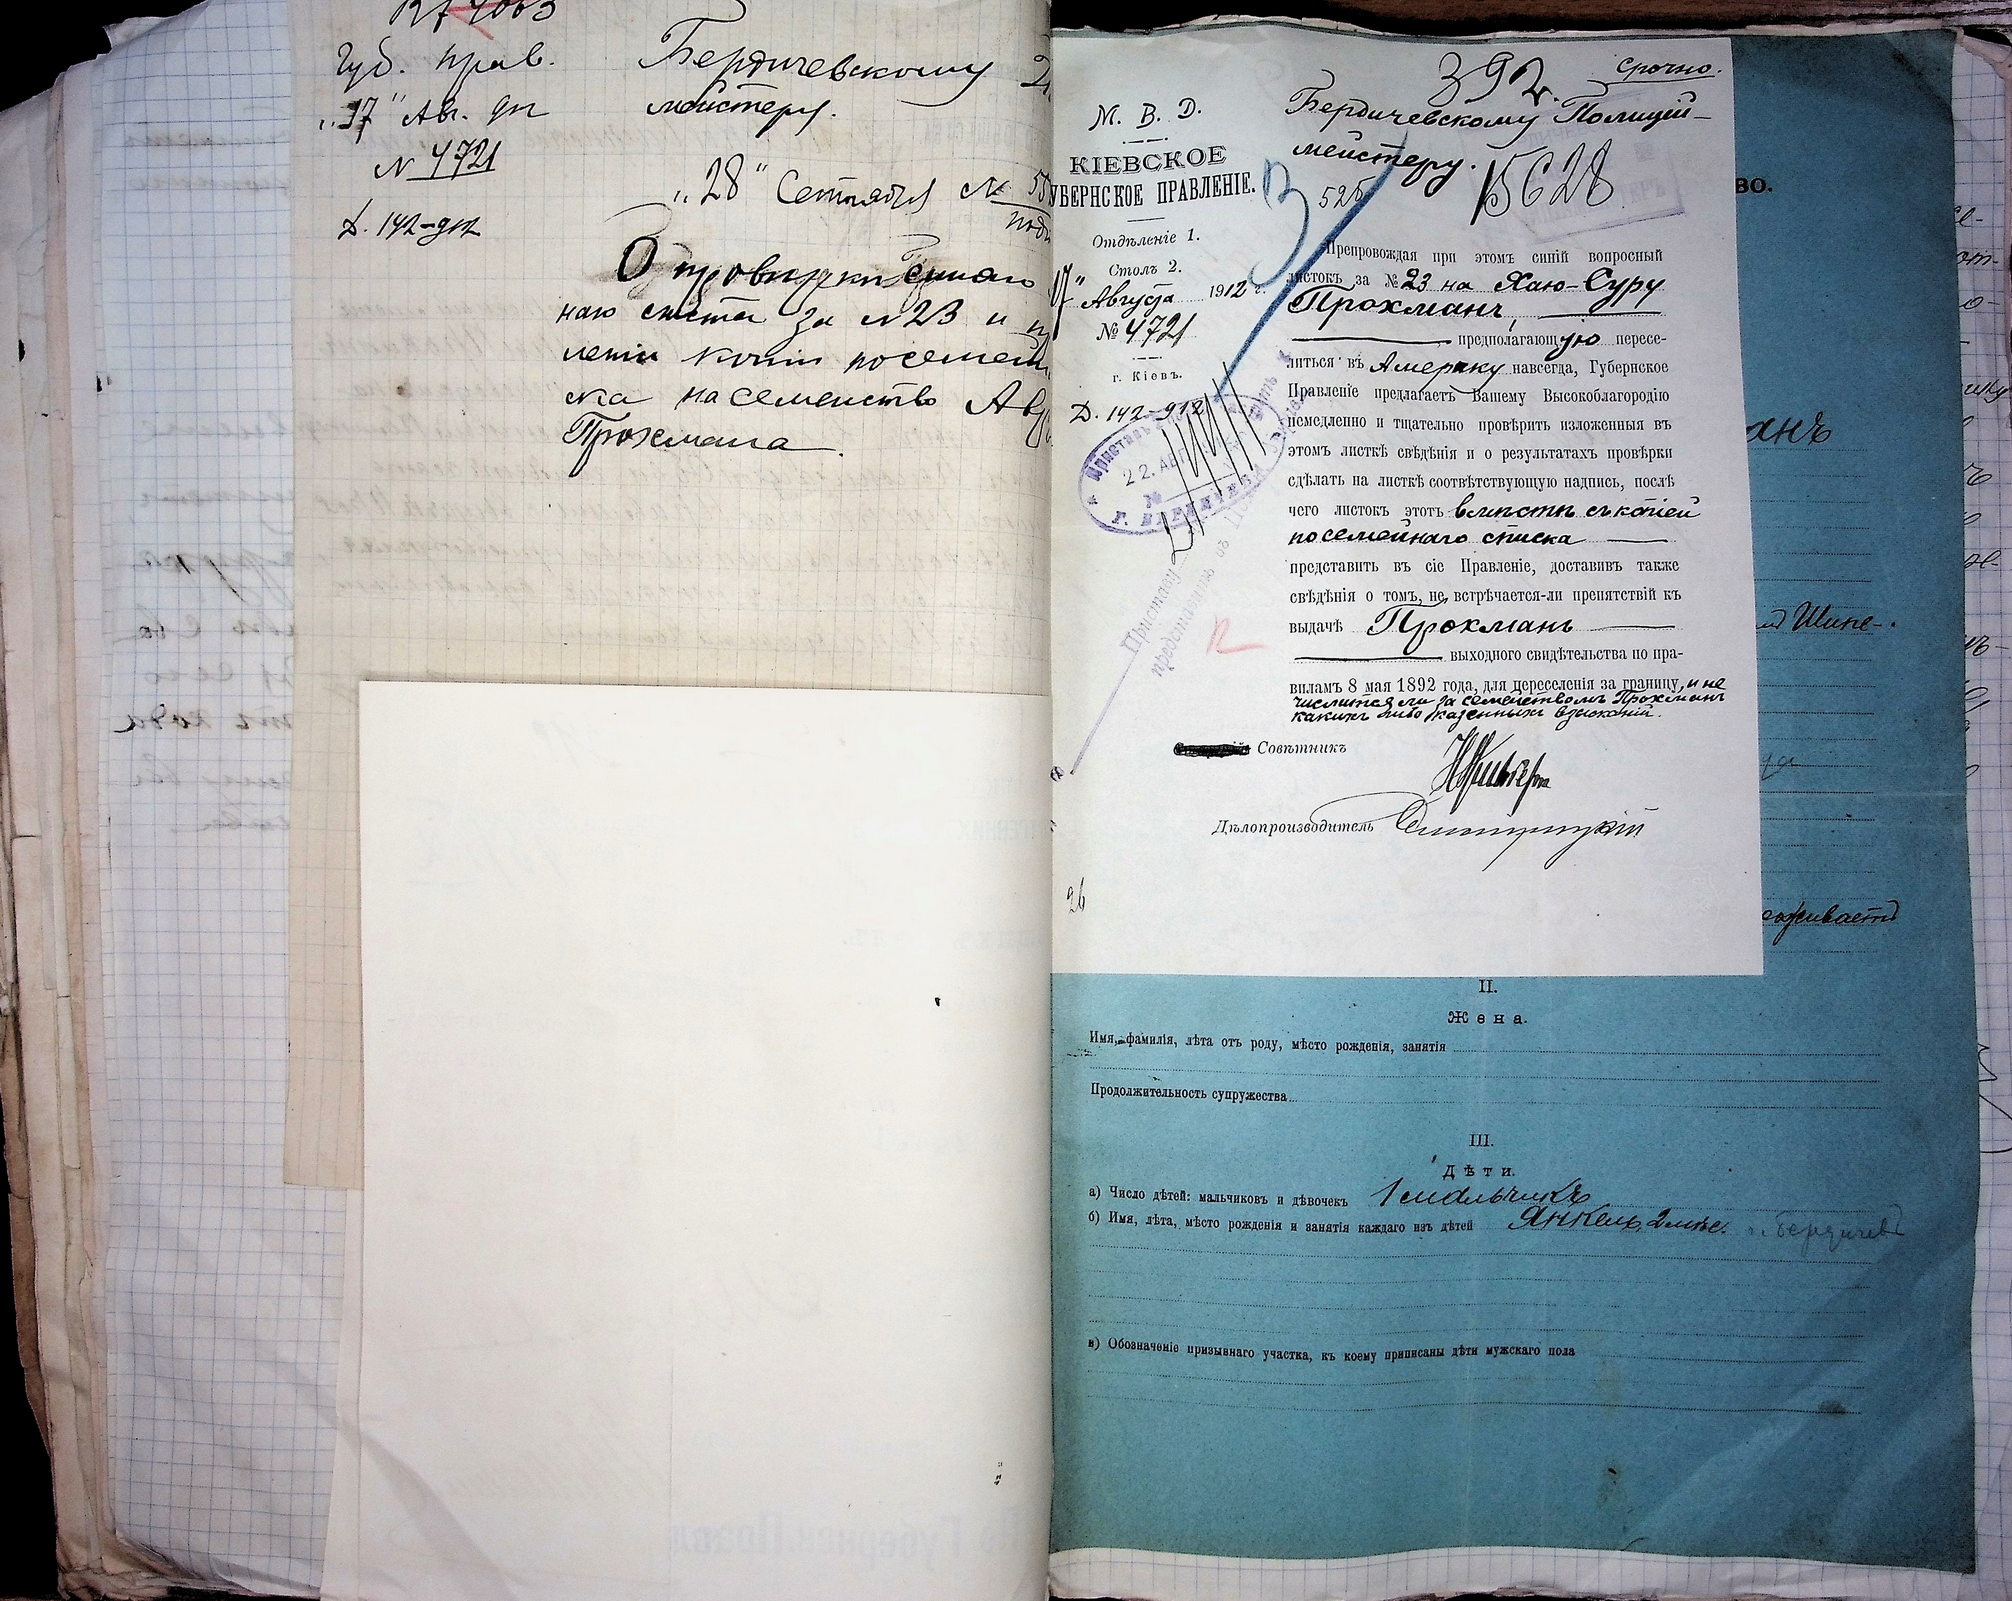 Губ. Прав.
„17" Авг. 912
№ 4721
Д. 142-912
Бердичевскому
мейстеру.
„28" Сентября №
О провѣркѣ синяго
листа за №23 и
копіи посемей
на семейство
Прохмана.
392.
Срочно.
М. В. Д.
КІЕВСКОЕ
УБЕРНСКОЕ ПРАВЛЕНІЕ.
Отдѣленіе 1.
Столъ 2.
17" Августа 1912 г.
№ 4721
г. Кіевъ.
Д. 142-912
22. АВГ.
Г. БЕРДИЧЕВА
Приставу
26
Бердичевскому Полицей-
мейстеру.
526
15628
Препровождая при этомъ синій вопросный
листокъ за № 23 на Хаю-Суру
Прохманъ,
предполагающую пересе-
литься въ Америку навсегда, Губернское
Правленіе предлагаетъ Вашему Высокоблагородію
немедленно и тщательно провѣрить изложенныя въ
этомъ листкѣ свѣдѣнія и о результатахъ провѣрки
сдѣлать на листкѣ соотвѣтствующую надпись, послѣ
чего листокъ этотъ вмѣстѣ съ копіей
посемейнаго списка
представить въ сіе Правленіе, доставивъ также
свѣдѣнія о томъ, не встрѣчается-ли препятствій къ
выдачѣ Прохманъ
выходного свидѣтельства по пра-
виламъ 8 мая 1892 года, для переселенія за границу, и не
числится ли за семействомъ Прохманъ
какихъ либо казенныхъ взысканій.
Совѣтникъ
Дѣлопроизводитель
ВО.
анъ
II.
Жена.
Имя, фамилія, лѣта отъ роду, мѣсто рожденія, занятія
Продолжительность супружества
III.
Дѣти.
а) Число дѣтей: мальчиковъ и дѣвочекъ 1 мальчикъ
б) Имя, лѣта, мѣсто рожденія и занятія каждаго изъ дѣтей Янкель, 2 лѣтъ. г. Бердичевъ
в) Обозначеніе призывнаго участка, къ коему приписаны дѣти мужскаго пола